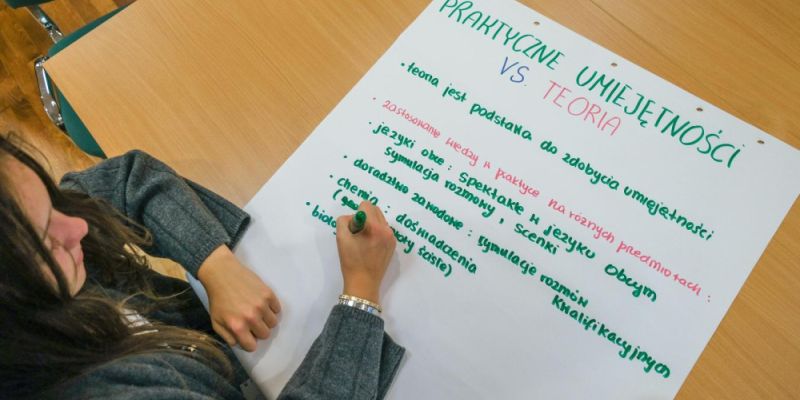 PRAKTYCZNE UMIEJĘTNOŚCI
VS. TEORIA
• teoria jest podstawa do zdobycia umiejętności
• zastosowanie wiedzy w praktyce na różnych przedmiotach :
• języki obce : spektakle w języku obcym
symulacja rozmowy , scenki
• doradztwo zawodowe : symulacje rozmów
kwalifikacyjnych
• chemia : doświadczenia
ścisłe)